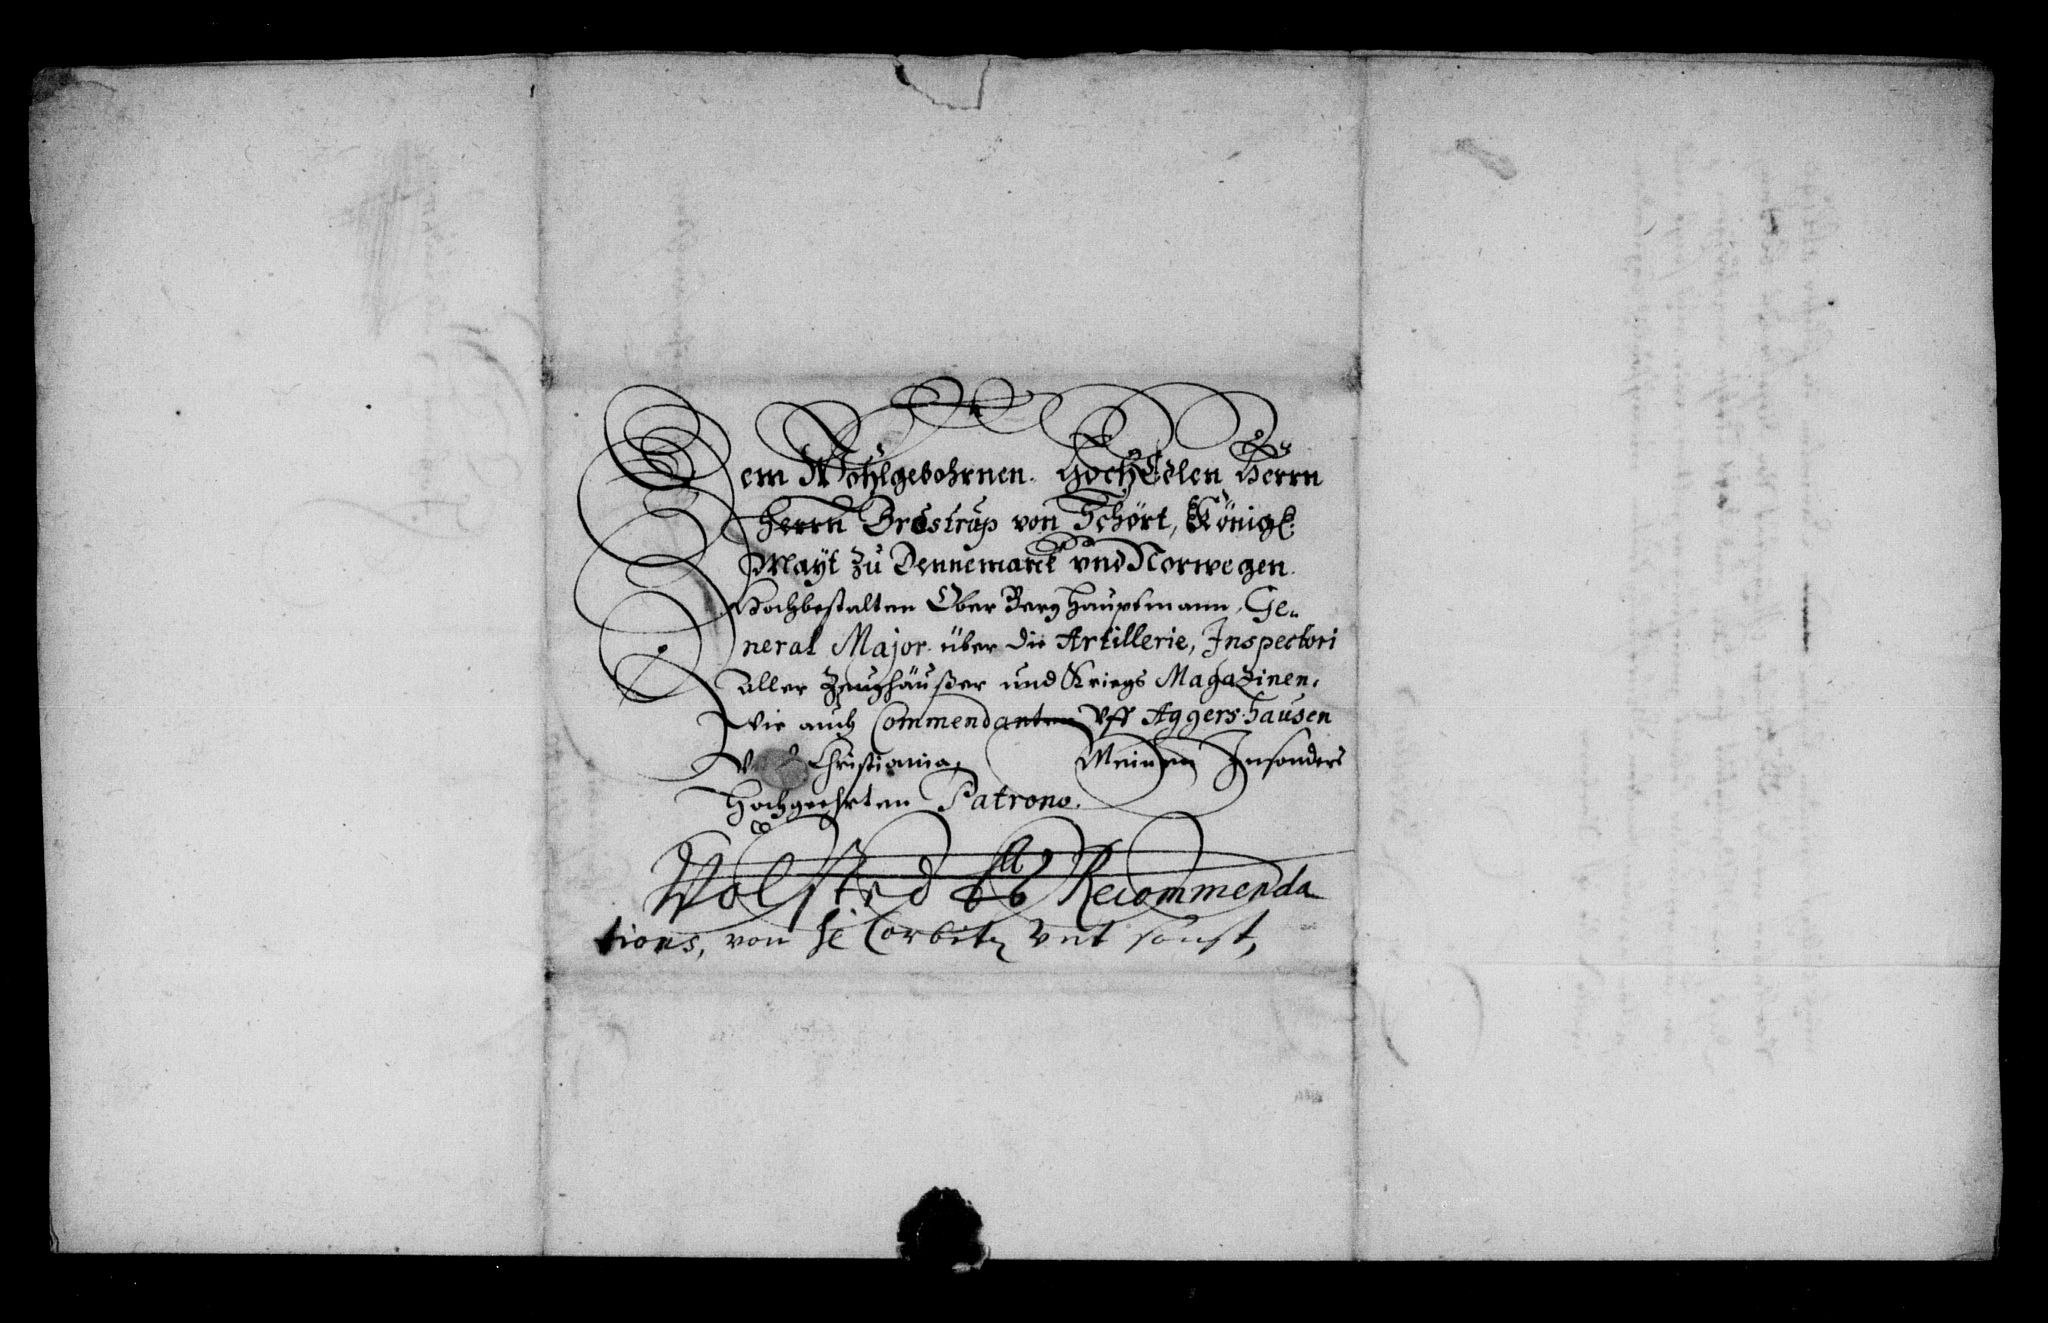 Dem Wohlgebohrnen HochEdlen Herrn
Herrn Brostrup von Schört, Königl:
Mayt zu Dennemarck und Norwegen
Hochbestalten Ober Berg Hauptmann, Ge-
neral Major über die Artillerie, Inspectori
aller Zeughäußer und Kriegs Magazinen,
Wie auch Commendanten Uff Aggershausen
Christiania, Meinem Insonders
Hochgeehrten Patrono.
Wolsted Recommenda
tions, von Corbitz Unt sonst,